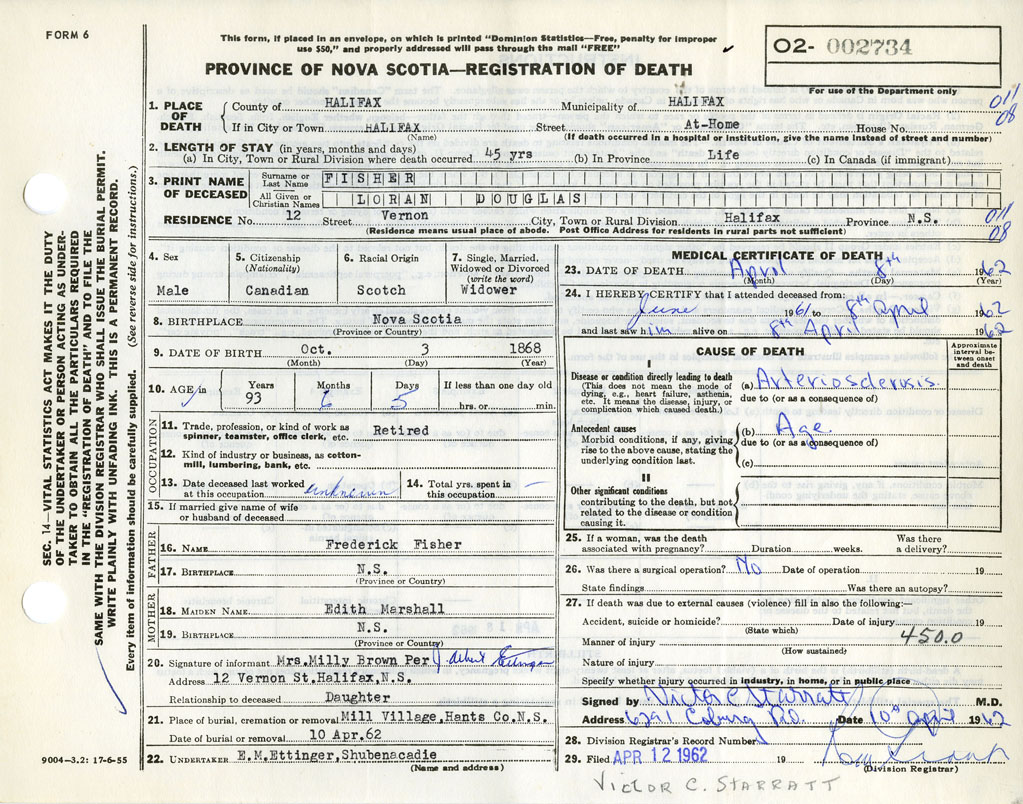 FORM 6
This form, if placed in an envelope, on which is printed "Dominion Statistics—Free, penalty for improper
use $50," and properly addressed will pass through the mail "FREE"
PROVINCE OF NOVA SCOTIA—REGISTRATION OF DEATH
02- 002734
For use of the Department only
1. PLACE OF DEATH { County of HALIFAX Municipality of HALIFAX 011 08
If in City or Town HALIFAX Street At-Home House No.
(Name) (If death occurred in a hospital or institution, give the name instead of street and number)
2. LENGTH OF STAY (in years, months and days)
(a) In City, Town or Rural Division where death occurred 45 yrs (b) In Province Life (c) In Canada (if immigrant)
3. PRINT NAME OF DECEASED { Surname or Last Name FISHER
All Given or Christian Names LORAN DOUGLAS
RESIDENCE No. 12 Street Vernon City, Town or Rural Division Halifax Province N.S. 011 08
(Residence means usual place of abode. Post Office Address for residents in rural parts not sufficient)
4. Sex
Male
5. Citizenship (Nationality)
Canadian
6. Racial Origin
Scotch
7. Single, Married, Widowed or Divorced (write the word)
Widower
8. BIRTHPLACE Nova Scotia
(Province or Country)
9. DATE OF BIRTH Oct. 3 1868
(Month) (Day) (Year)
10. AGE in Years Months Days If less than one day old
93 6 5 hrs. or min.
OCCUPATION
11. Trade, profession, or kind of work as spinner, teamster, office clerk, etc. Retired
12. Kind of industry or business, as cotton-mill, lumbering, bank, etc.
13. Date deceased last worked at this occupation unknown 14. Total yrs. spent in this occupation —
15. If married give name of wife or husband of deceased
FATHER
16. NAME Frederick Fisher
17. BIRTHPLACE N.S.
(Province or Country)
MOTHER
18. MAIDEN NAME Edith Marshall
19. BIRTHPLACE N.S.
(Province or Country)
20. Signature of informant Mrs.Milly Brown Per Albert Ettinger
Address 12 Vernon St.Halifax,N.S.
Relationship to deceased Daughter
21. Place of burial, cremation or removal Mill Village,Hants Co.N.S.
Date of burial or removal 10 Apr.62
22. UNDERTAKER E.M.Ettinger,Shubenacadie
(Name and address)
MEDICAL CERTIFICATE OF DEATH
23. DATE OF DEATH April 8th 1962
(Month) (Day) (Year)
24. I HEREBY CERTIFY that I attended deceased from:
June 1961 to 8th April 1962
and last saw him alive on 8th April 1962
CAUSE OF DEATH
Approximate interval between onset and death
I
Disease or condition directly leading to death
(This does not mean the mode of dying, e.g., heart failure, asthenia, etc. It means the disease, injury, or complication which caused death.)
(a) Arteriosclerosis
due to (or as a consequence of)
Antecedent causes
Morbid conditions, if any, giving rise to the above cause, stating the underlying condition last.
(b) Age
due to (or as a consequence of)
(c)
II
Other significant conditions
contributing to the death, but not related to the disease or condition causing it.
25. If a woman, was the death associated with pregnancy? Duration weeks. Was there a delivery?
26. Was there a surgical operation? No Date of operation 19
State findings Was there an autopsy?
27. If death was due to external causes (violence) fill in also the following:—
Accident, suicide or homicide? Date of injury 19
(State which)
Manner of injury 450.0
(How sustained)
Nature of injury
Specify whether injury occurred in industry, in home, or in public place
Signed by Victor C Starratt M.D.
Address 6291 Coburg Rd. Date 10th April 1962
28. Division Registrar's Record Number
29. Filed APR 12 1962 19
(Division Registrar)
VICTOR C. STARRATT
SEC. 14—VITAL STATISTICS ACT MAKES IT THE DUTY
OF THE UNDERTAKER OR PERSON ACTING AS UNDER-
TAKER TO OBTAIN ALL THE PARTICULARS REQUIRED
IN THE "REGISTRATION OF DEATH" AND TO FILE THE
SAME WITH THE DIVISION REGISTRAR WHO SHALL ISSUE THE BURIAL PERMIT.
WRITE PLAINLY WITH UNFADING INK. THIS IS A PERMANENT RECORD.
Every item of information should be carefully supplied. (See reverse side for instructions.)
9004-3.2: 17-6-55